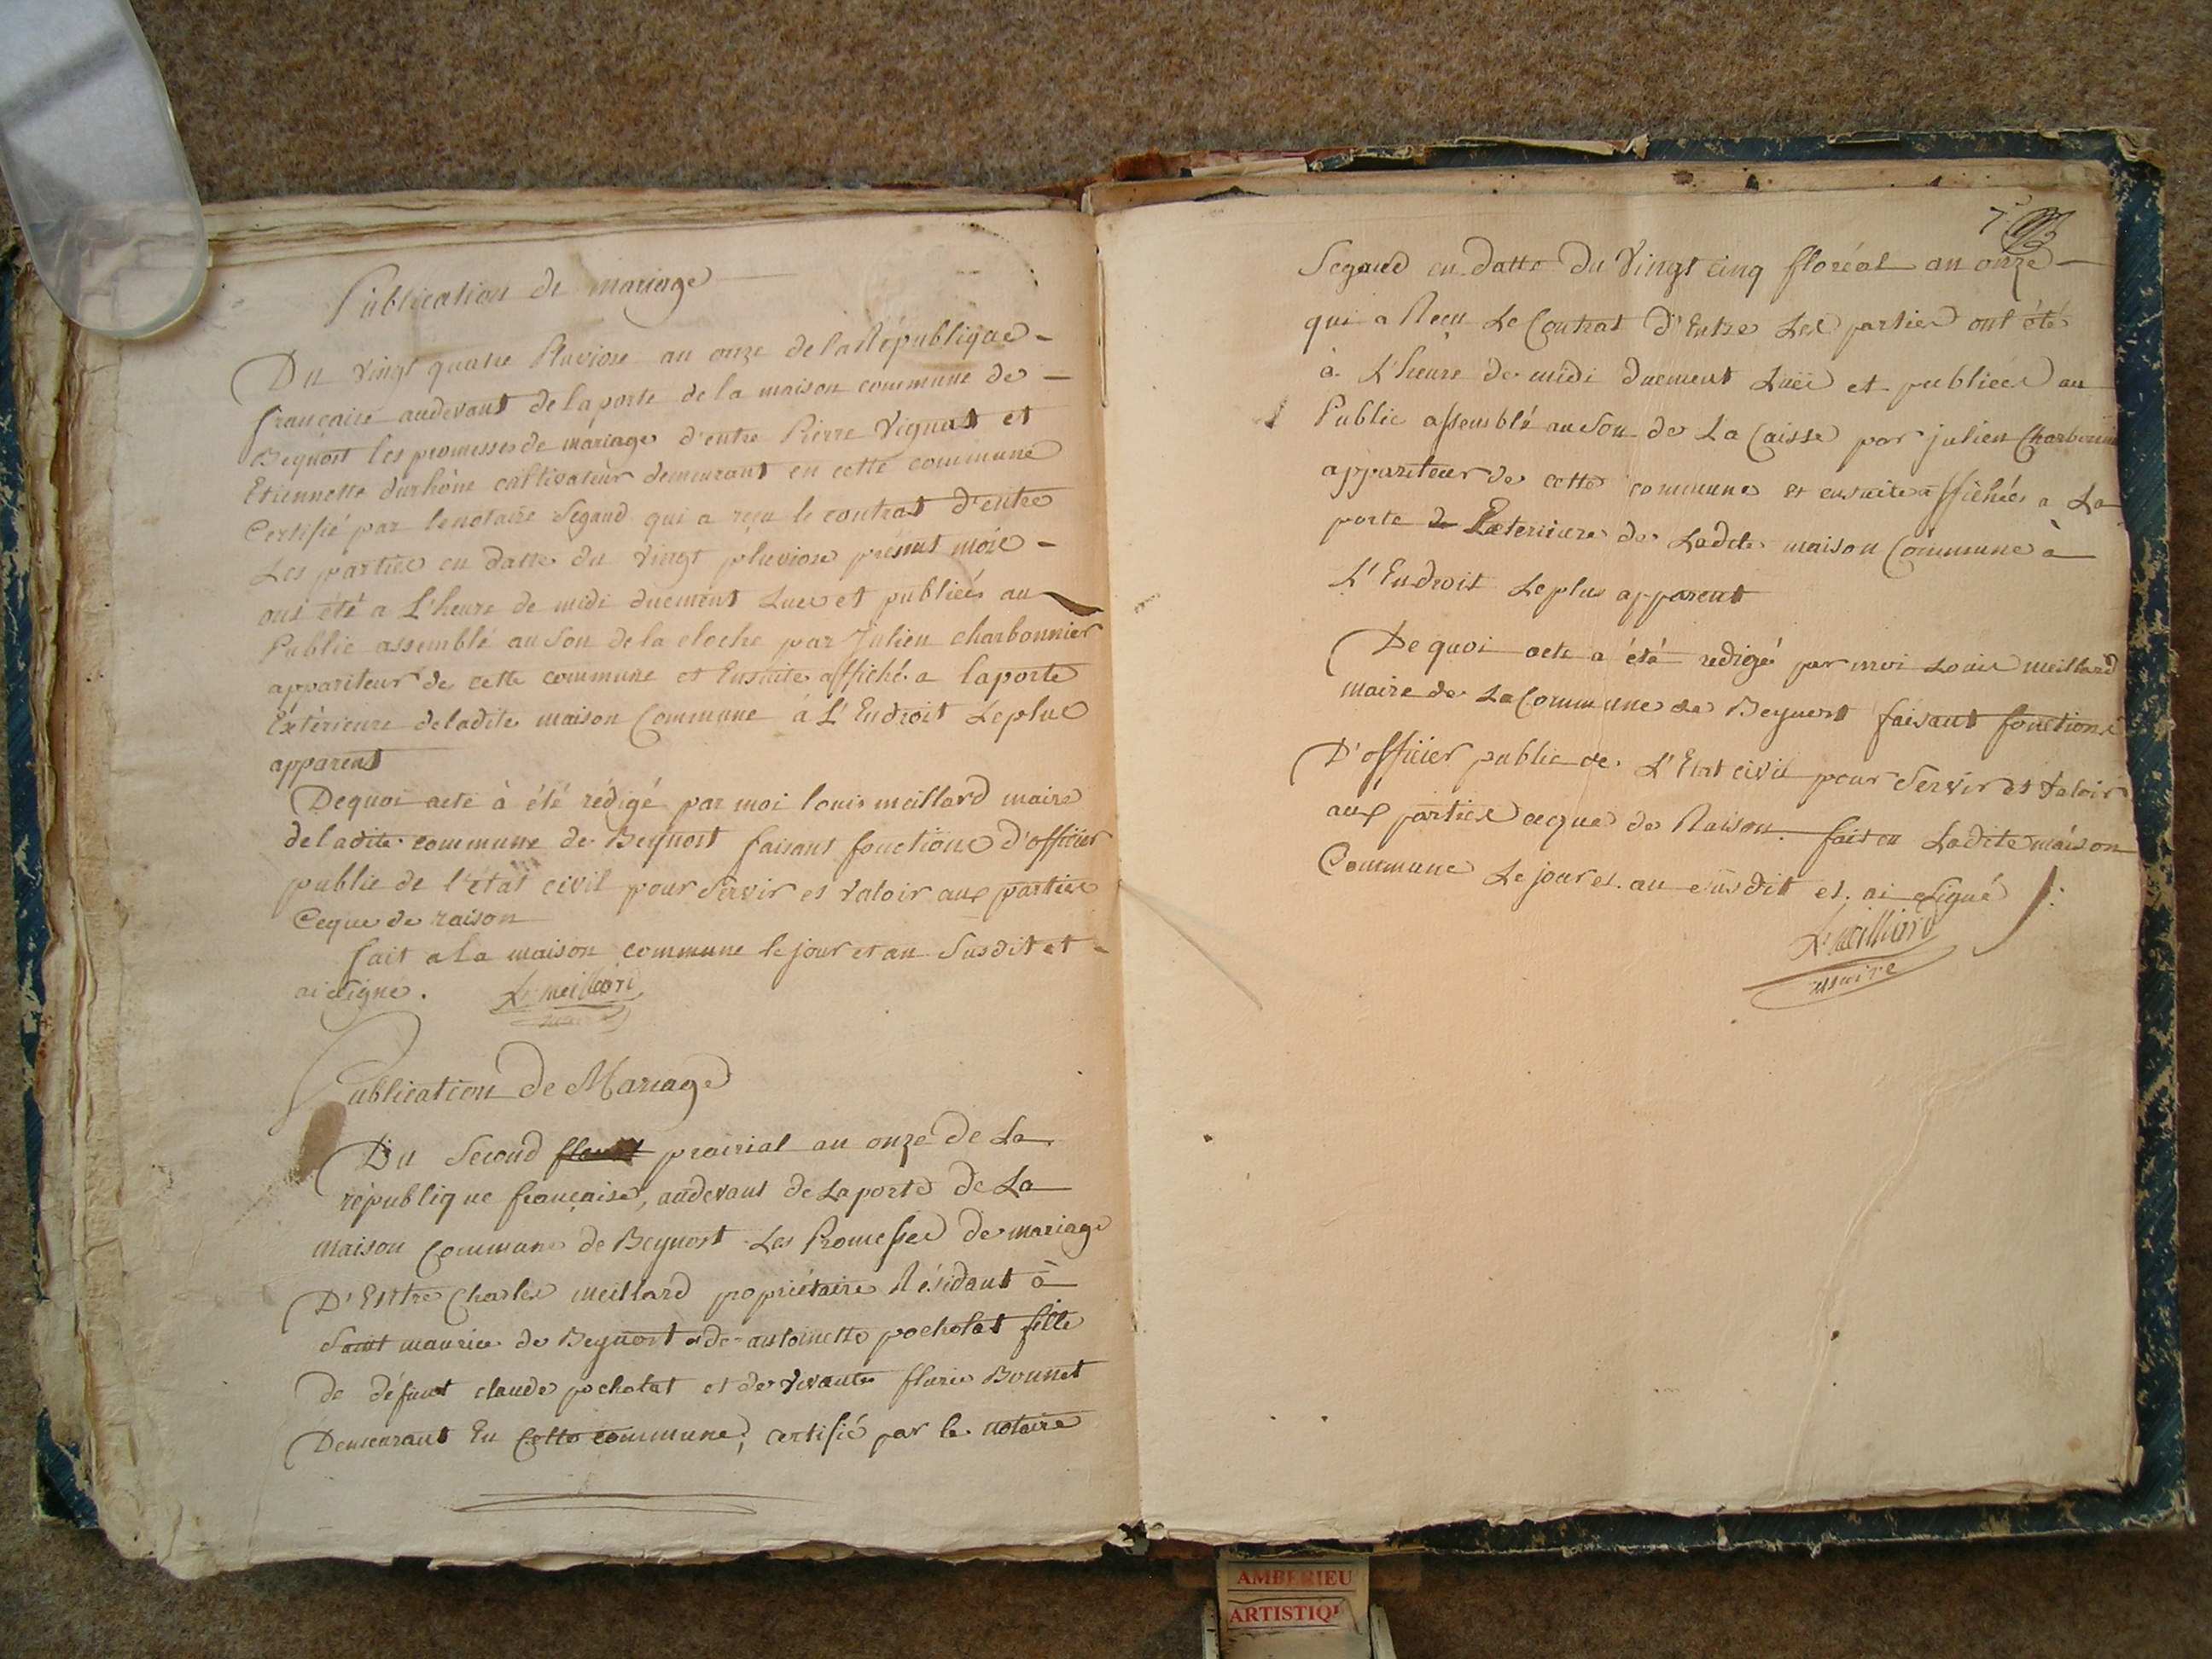 Publication de mariage
Du vingt quatre Pluviose an onze de la République
française audevant de la porte de la maison commune de
Beynost les promesses de mariage d'entre Pierre Vignat et
Etiennette durhône cultivateur demeurant en cette commune
Certifié par le notaire Segaud qui a reçu le contrat d'entre
Les parties en datte du vingt pluviose présent mois
ont été a L'heure de midi duement Lues et publiées au
Public assemblé au son de la cloche par Julien charbonnier
appariteur de cette commune et Ensuite affiché a la porte
Extérieure de ladite maison Commune à L'Endroit Le plus
apparent
De quoi acte à été rédigé par moi louis meillard maire
de ladite commune de Beynost faisant fonctions d'officier
public de l'état civil pour servir et valoir aux parties
Ceque de raison
fait a la maison commune le jour et an Susdit et
ai signe. Ls meillard
maire
Publication de Mariage
Du Second prairial an onze de La
république française, audevant de La porte de La
maison Commune de Beynost Les Promesses de mariage
D'Entre Charles meillard propriétaire Résidant à
Saint maurice de Beynost & de antoinette pocholat fille
de défunt claude pochotat et de vivante flurie Bonnet
Demeurant En Cette commune, certifié par le notaire
7
Segaud en datte Du Vingt cinq floréal an onze
qui a Reçu Le Contrat D'Entre Les parties ont été
à L'heure de midi duement Luës et publiées au
Public assemblé au Son de La Caisse par julien Charbonnier
appariteur de cette commune et ensuite affichées a La
porte Exterieure de Ladite maison Commune à
L'Endroit Le plus apparent
De quoi acte a été redigé par moi Louis meillard
maire de La Commune de Beynost faisant fonctions
D'officier public de L'Etat civil pour Servir et Valoir
aux parties ceque de Raison. fait en Ladite maison
Commune Le jour et an susdit et ai signé
Ls meillard
maire
AMBERIEU
ARTISTIQ